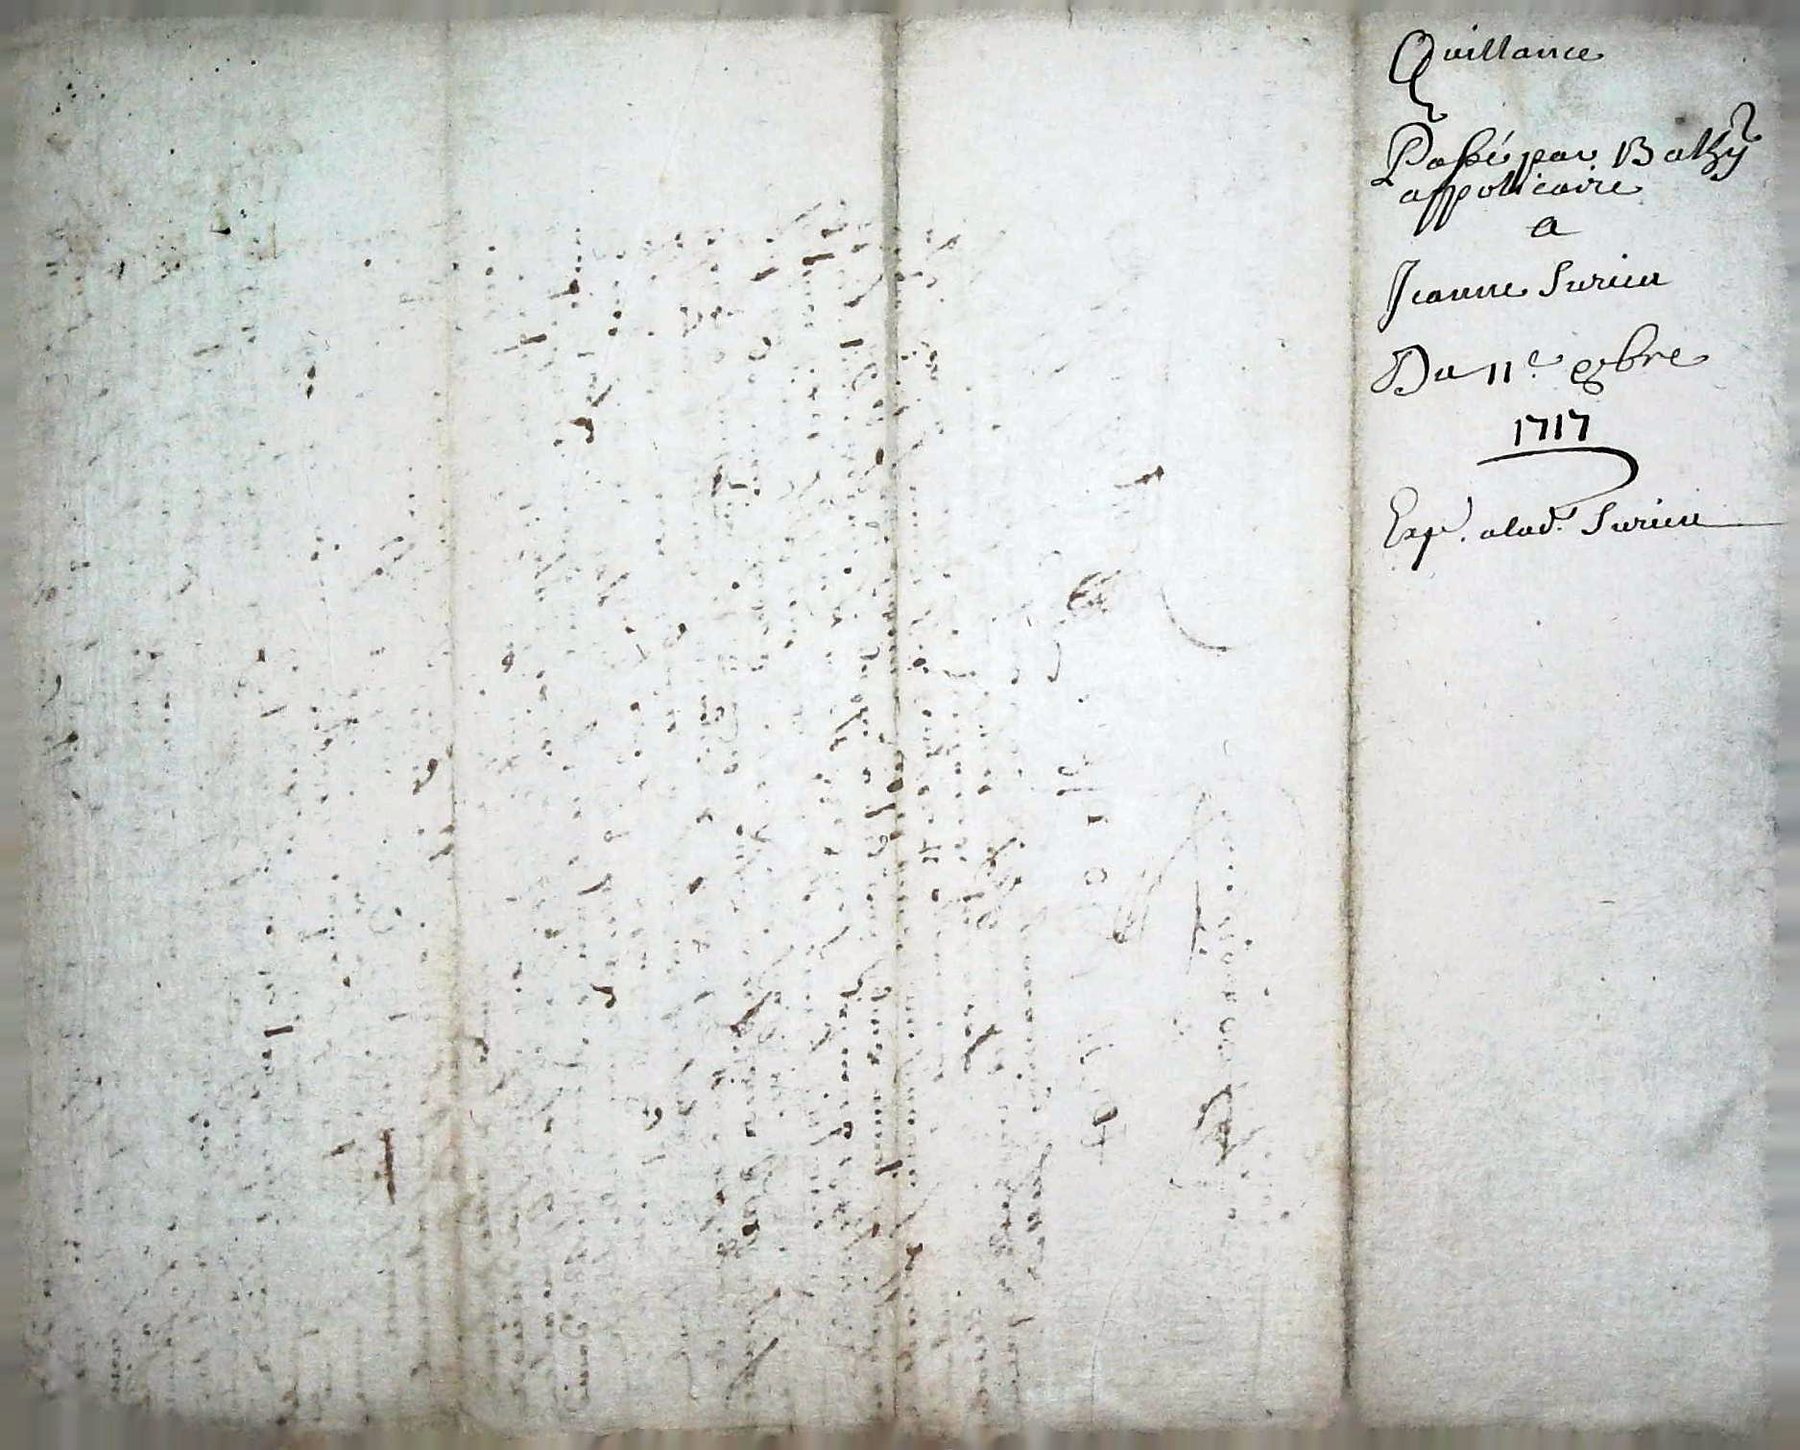 Quittance
Passé par Bathÿ
appoticaire
a
Jeanne Surieu
Du 11e xbre
1717
Exp. alad. Surieu